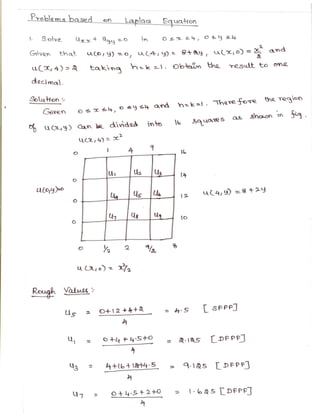 Problems based on Laplas Equation
1. Solve Uxx + Uyy = 0 in 0 ≤ x ≤ 4, 0 ≤ y ≤ 4
Given that u(0,y) = 0, u(4,y) = 8+2y, u(x,0) = x²/2 and
u(x,4) = x² taking h=k=1. Obtain the result to one
decimal.
Solution:-
Given 0 ≤ x ≤ 4, 0 ≤ y ≤ 4 and h=k=1. Therefore the region
of u(x,y) can be divided into 16 squares as shown in fig.
u(x,4) = x²
0 1 4 9 16
0 u₁ u₂ u₃ 14
u(0,y)=0 0 u₄ u₅ u₆ 12 u(4,y) = 8+2y
0 u₇ u₈ u₉ 10
0 1/2 2 9/2 8
u(x,0) = x²/2
Rough Values:-
u₅ = 0+12+4+2 / 4 = 4.5 [SFPF]
u₁ = 0+4+4.5+0 / 4 = 2.125 [DFPF]
u₃ = 4+16+12+4.5 / 4 = 9.125 [DFPF]
u₇ = 0+4.5+2+0 / 4 = 1.625 [DFPF]